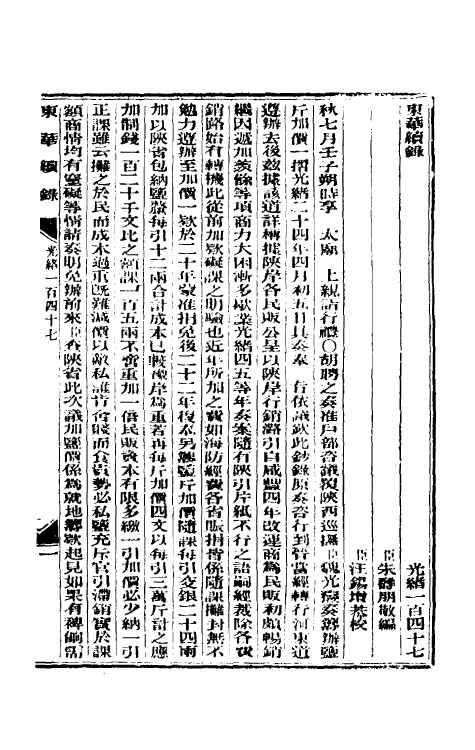 東華續錄
光緒一百四十七
臣朱壽朋敬編
臣汪錫增恭校
秋七月壬子朔時享　太廟　上親詣行禮○胡聘之奏准戶部咨議覆陝西巡撫臣魏光燾奏籌辦鹽
斤加價一摺光緒二十四年四月初五日具奏奉　旨依議欽此鈔錄原奏咨行到晉當經轉行河東道
遵辦去後茲據該道詳稱據陝岸各民販公呈以陝岸行銷潞引自咸豐四年改運商為民販初頗暢銷
繼因遞加羨餘等項商力大困漸多歇業光緒四五等年奏案隨有陝引片紙不行之語嗣經裁除各費
銷路始有轉機此從前加欵礙課之明驗也近年所加之費如海防經費各省賑捐皆係隨課攤封無不
勉力遵辦至加價一欵於二十年蒙准捐免後二十二年復奉另籌鹽斤加價隨課每引交銀二十四兩
加以陝省包納鹽釐每引十二兩合計成本已較豫岸為重若再每斤加價四文以每引三萬斤計之應
加制錢一百二十千文比之額課一百五兩不啻重加一倍民販資本有限多繳一引加價必少納一引
正課雖云攤之於民而成本過重既難減價以敵私誰肯舍賤而食貴勢必私鹽充斥官引滯銷實於課
額商情均有窒礙等情請奏明免辦前來臣查陝省此次議加鹽價係為就地籌款起見如果有裨餉需
東華續錄
光緒一百四十七
一